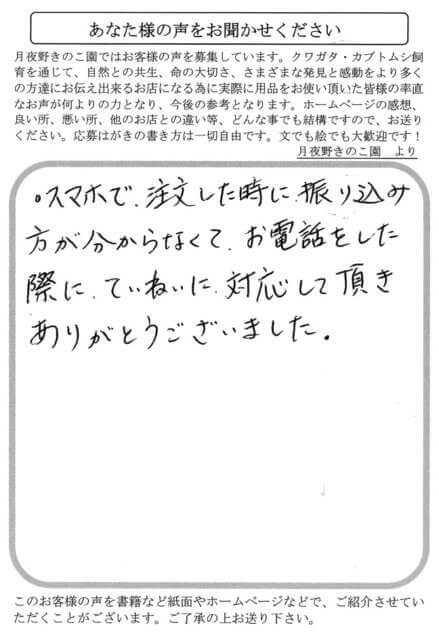 あなた様の声をお聞かせください
月夜野きのこ園ではお客様の声を募集しています。クワガタ・カブトムシ飼
育を通じて、自然との共生、命の大切さ、さまざまな発見と感動をより多く
の方達にお伝え出来るお店になる為に実際に用品をお使い頂いた皆様の率直
なお声が何よりの力となり、今後の参考となります。ホームページの感想、
良い所、悪い所、他のお店との違い等、どんな事でも結構ですので、お送り
ください。応募はがきの書き方は一切自由です。文でも絵でも大歓迎です！
月夜野きのこ園　より
。スマホで、注文した時に、振り込み
方が分からなくて、お電話をした
際に、ていねいに、対応して頂き
ありがとうございました。
このお客様の声を書籍など紙面やホームページなどで、ご紹介させてい
ただくことがございます。ご了承の上お送り下さい。